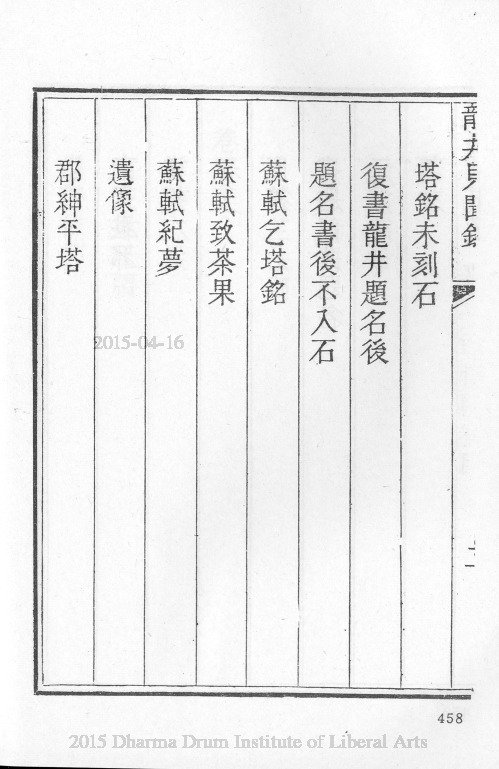 龍井見聞錄
塔銘未刻石
復書龍井題名後
題名書後不入石
蘇軾乞塔銘
蘇軾致茶果
蘇軾紀夢
遺像
郡紳平塔
2015-04-16
458
2015 Dharma Drum Institute of Liberal Arts